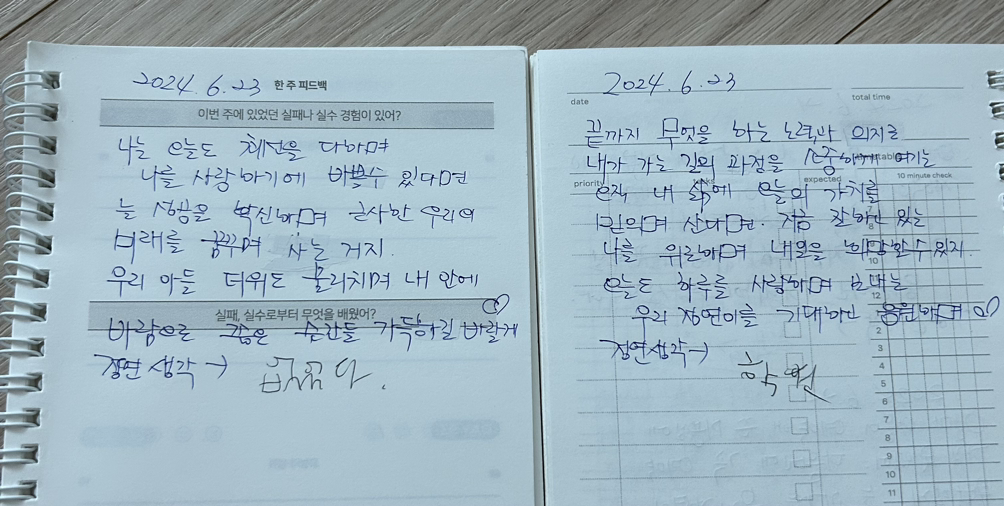 2024. 6. 23 한 주 피드백
이번 주에 있었던 실패나 실수 경험이 있어?
나는 오늘도 최선을 다하며
나를 사랑하기에 바쁠수 있다면
늘 성공을 확신하며 근사한 우리의
미래를 꿈꾸며 사는 거지.
우리 아들 더위도 물리치며 내 안에
실패, 실수로부터 무엇을 배웠어?
바람으로 굽은 순간들 가득하길 바랄게
정연 생각→
2024. 6. 23
date
total time
끝까지 무엇을 하는 노력과 의지로
내가 가는 길의 과정을 존중하며 여기는
priority
expected
10 minute check
오직 내 삶에 오늘의 가치를
믿으며 산다면. 지금 잘하고 있는
나를 위로하며 내일을 희망할수있지.
오늘도 하루를 사랑하며 보내는
12
우리 정연이를 기대하고 응원하며
2
정연생각→
3
4
5
6
7
8
9
10
11